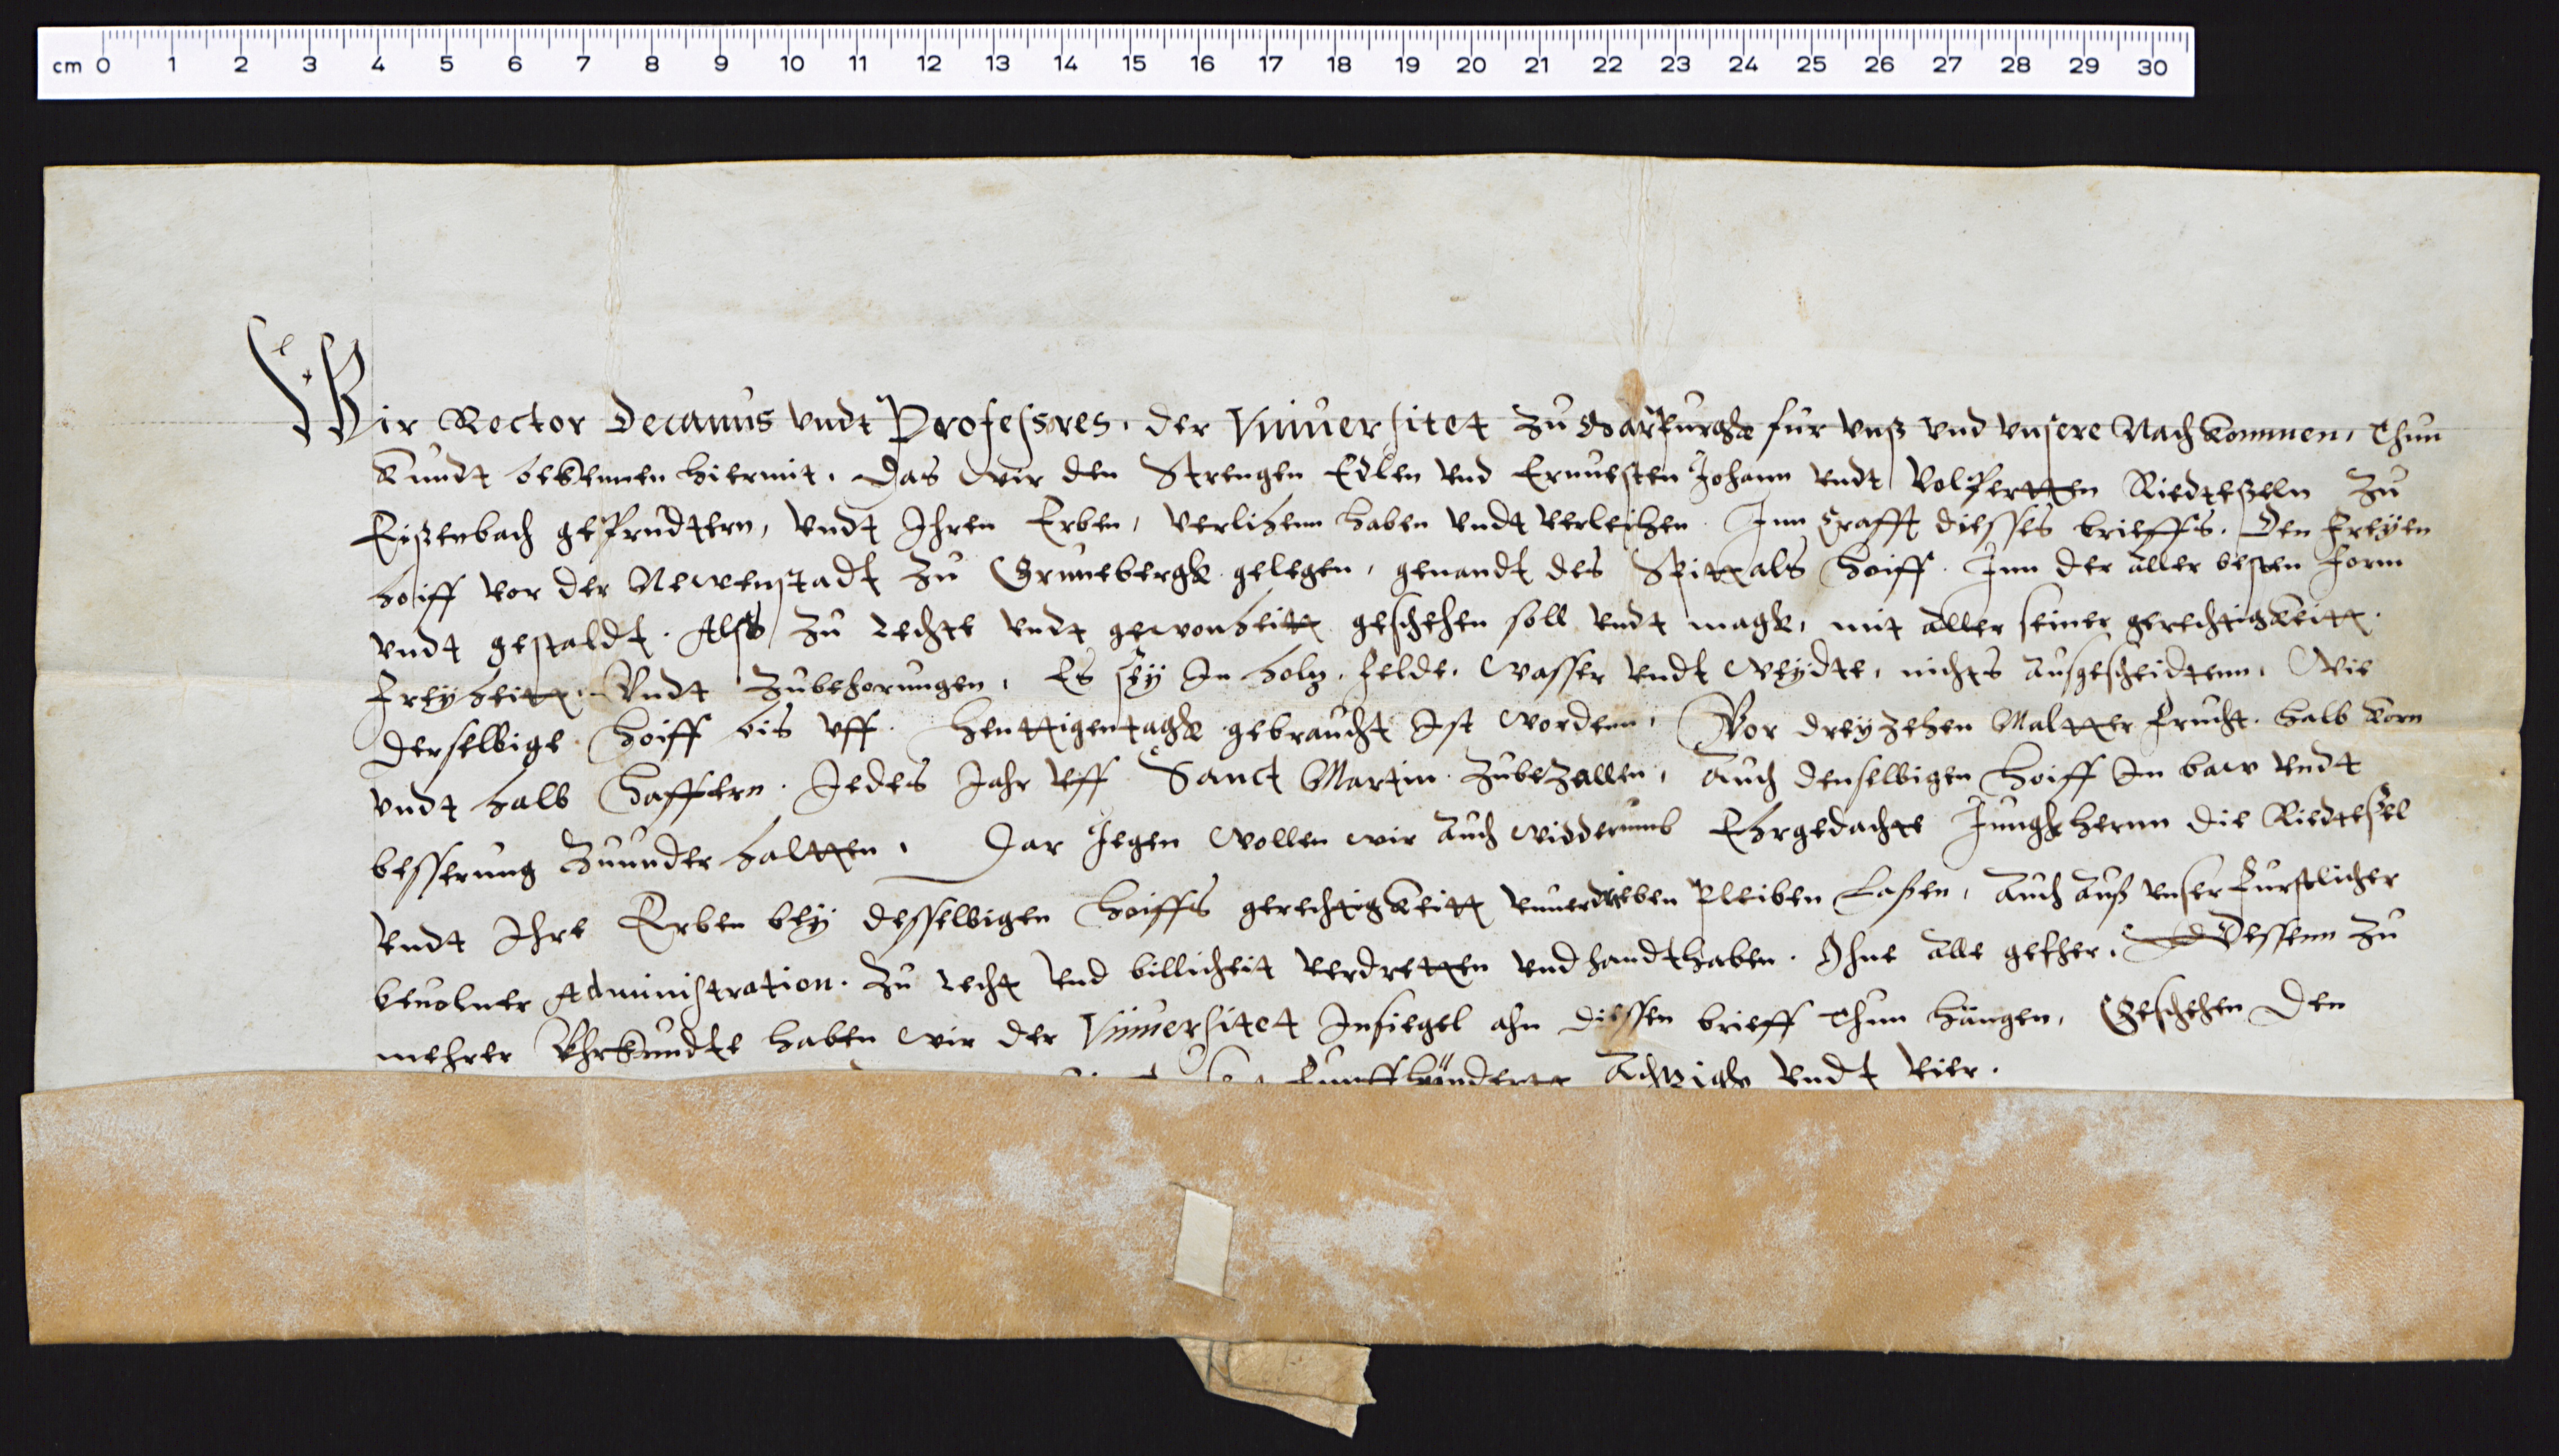 cm 0 1 2 3 4 5 6 7 8 9 10 11 12 13 14 15 16 17 18 19 20 21 22 23 24 25 26 27 28 29 30
Wir Rector Decanus vndt Professores. der Vniuersitet zu Marpurgk für vnß vnd vnsere Nachkommen, Thun
kundt bekennen hiermit. Das wir den Strengen Edlen vnd Ernuesten Johann vndt Volpertten Riedteßeln zu
Eißenbach geprudtern, vndt Ihren Erben, verlihenn haben vndt verleihen. Inn Crafft diesses brieffs. Den Freÿen
hoiff vor der Newenstadt zu Grunebergk gelegen, genandt des Spittals hoiff. Inn der aller besten form
vndt gestaldt. Alß zu rechte vndt gewonheitt geschehen soll vndt magk, mit aller seiner gerechtigkeitt.
Freyheitt. Vndt zubehorungen, Es seÿ In holtz. felde. Wasser vndt Weÿdte, nichts außgescheidtenn. Wie
derselbige hoiff bis vff. heuttigentagk gebraucht Ist wordenn, Vor dreyzehen Maltter frucht. halb korn
vndt halb haffern. Jedes Jahr vff Sanct Martin zubezallen, Auch denselbigen hoiff In baw vndt
besserung zuunderhaltten. Dar Jegen wollen wir Auch widderumb Ehrgedachte Jungkhernn die Riedtesel
vndt Ihre Erben beÿ desselbigen hoiffs gerechtigkeitt pleiben laßen, Auch Auß vnser Furstlicher
beuolner Administration. zu recht vnd billicheit verdretten vnd handthaben. Ohne alle gefher. Dessenn zu
mehrer Vhrkundte haben wir der Vniuersitet Insiegel ahn diessen brieff thun hangen, Geschehen Den
funffhundertt Achtzigk vndt vier.